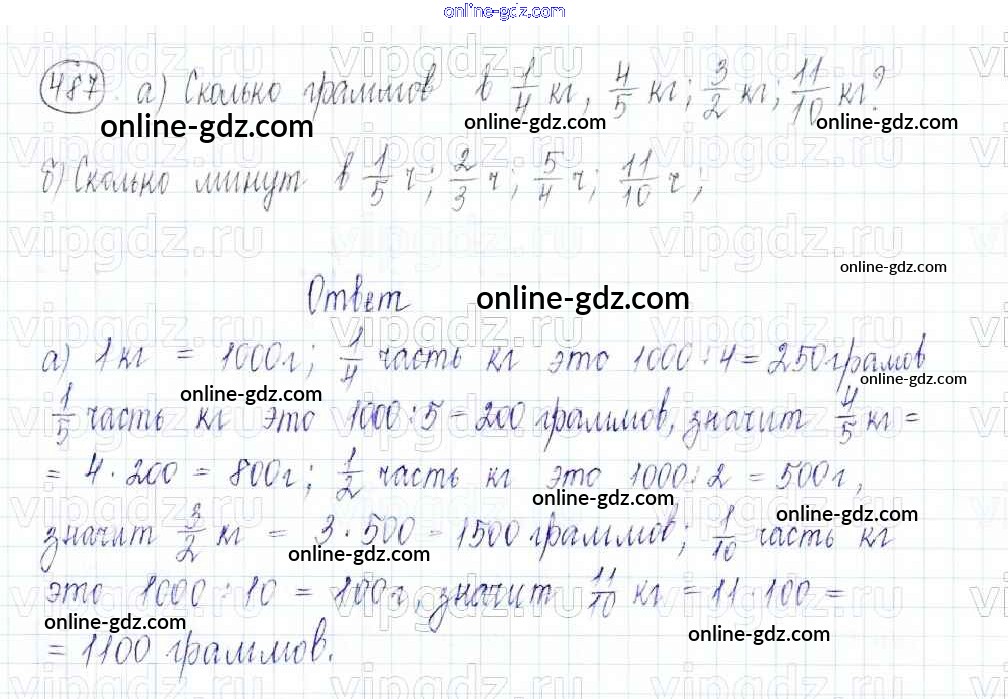 online-gdz.com
487. а) Сколько граммов в 1/4 кг, 4/5 кг; 3/2 кг; 11/10 кг?
online-gdz.com online-gdz.com online-gdz.com
б) Сколько минут в 1/5 ч; 2/3 ч; 5/4 ч; 11/10 ч;
online-gdz.com
Ответ online-gdz.com
а) 1 кг = 1000г; 1/4 часть кг это 1000:4 = 250грамов
online-gdz.com online-gdz.com
1/5 часть кг это 1000:5 = 200 граммов, значит 4/5 кг =
= 4·200 = 800г; 1/2 часть кг это 1000:2 = 500г,
online-gdz.com online-gdz.com
значит 3/2 кг = 3·500 = 1500 граммов; 1/10 часть кг
online-gdz.com online-gdz.com
это 1000:10 = 100г, значит 11/10 кг = 11·100 =
online-gdz.com online-gdz.com
= 1100 граммов.
vipgdz.ru